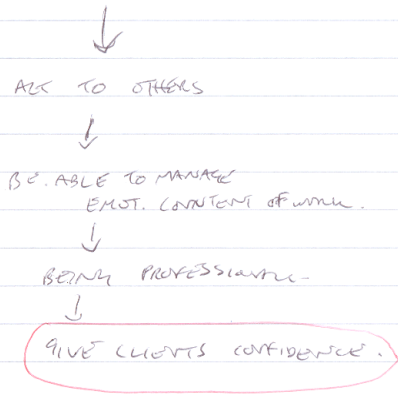 TO OTHERS
BE. ABLE TO MANAGE
EMOT. CONTENT OF WORK.
BEING PROFESSIONAL
GIVE CLIENTS CONFIDENCE.